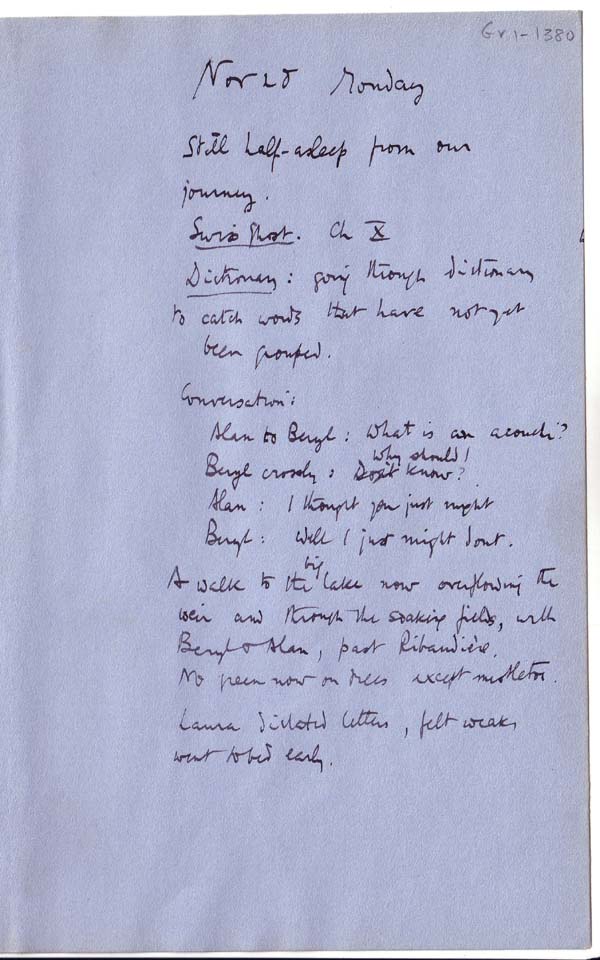 Gr 1-1380
Nov 28 Monday
Still half-asleep from our
journey.
Swiss Ghost. Ch X
Dictionary: going through dictionary
to catch words that have not yet
been grouped.
Conversation:
Alan to Beryl: What is an acouchi?
Beryl crossly: Why should I know?
Alan: I thought you just might
Beryl: Well I just might dont.
A walk to the big lake now overflowing the
weir and through the soaking fields, with
Beryl & Alan, past Ribaudière.
No green now on trees except mistletoe.
Laura dictated letters, felt weak &
went to bed early.